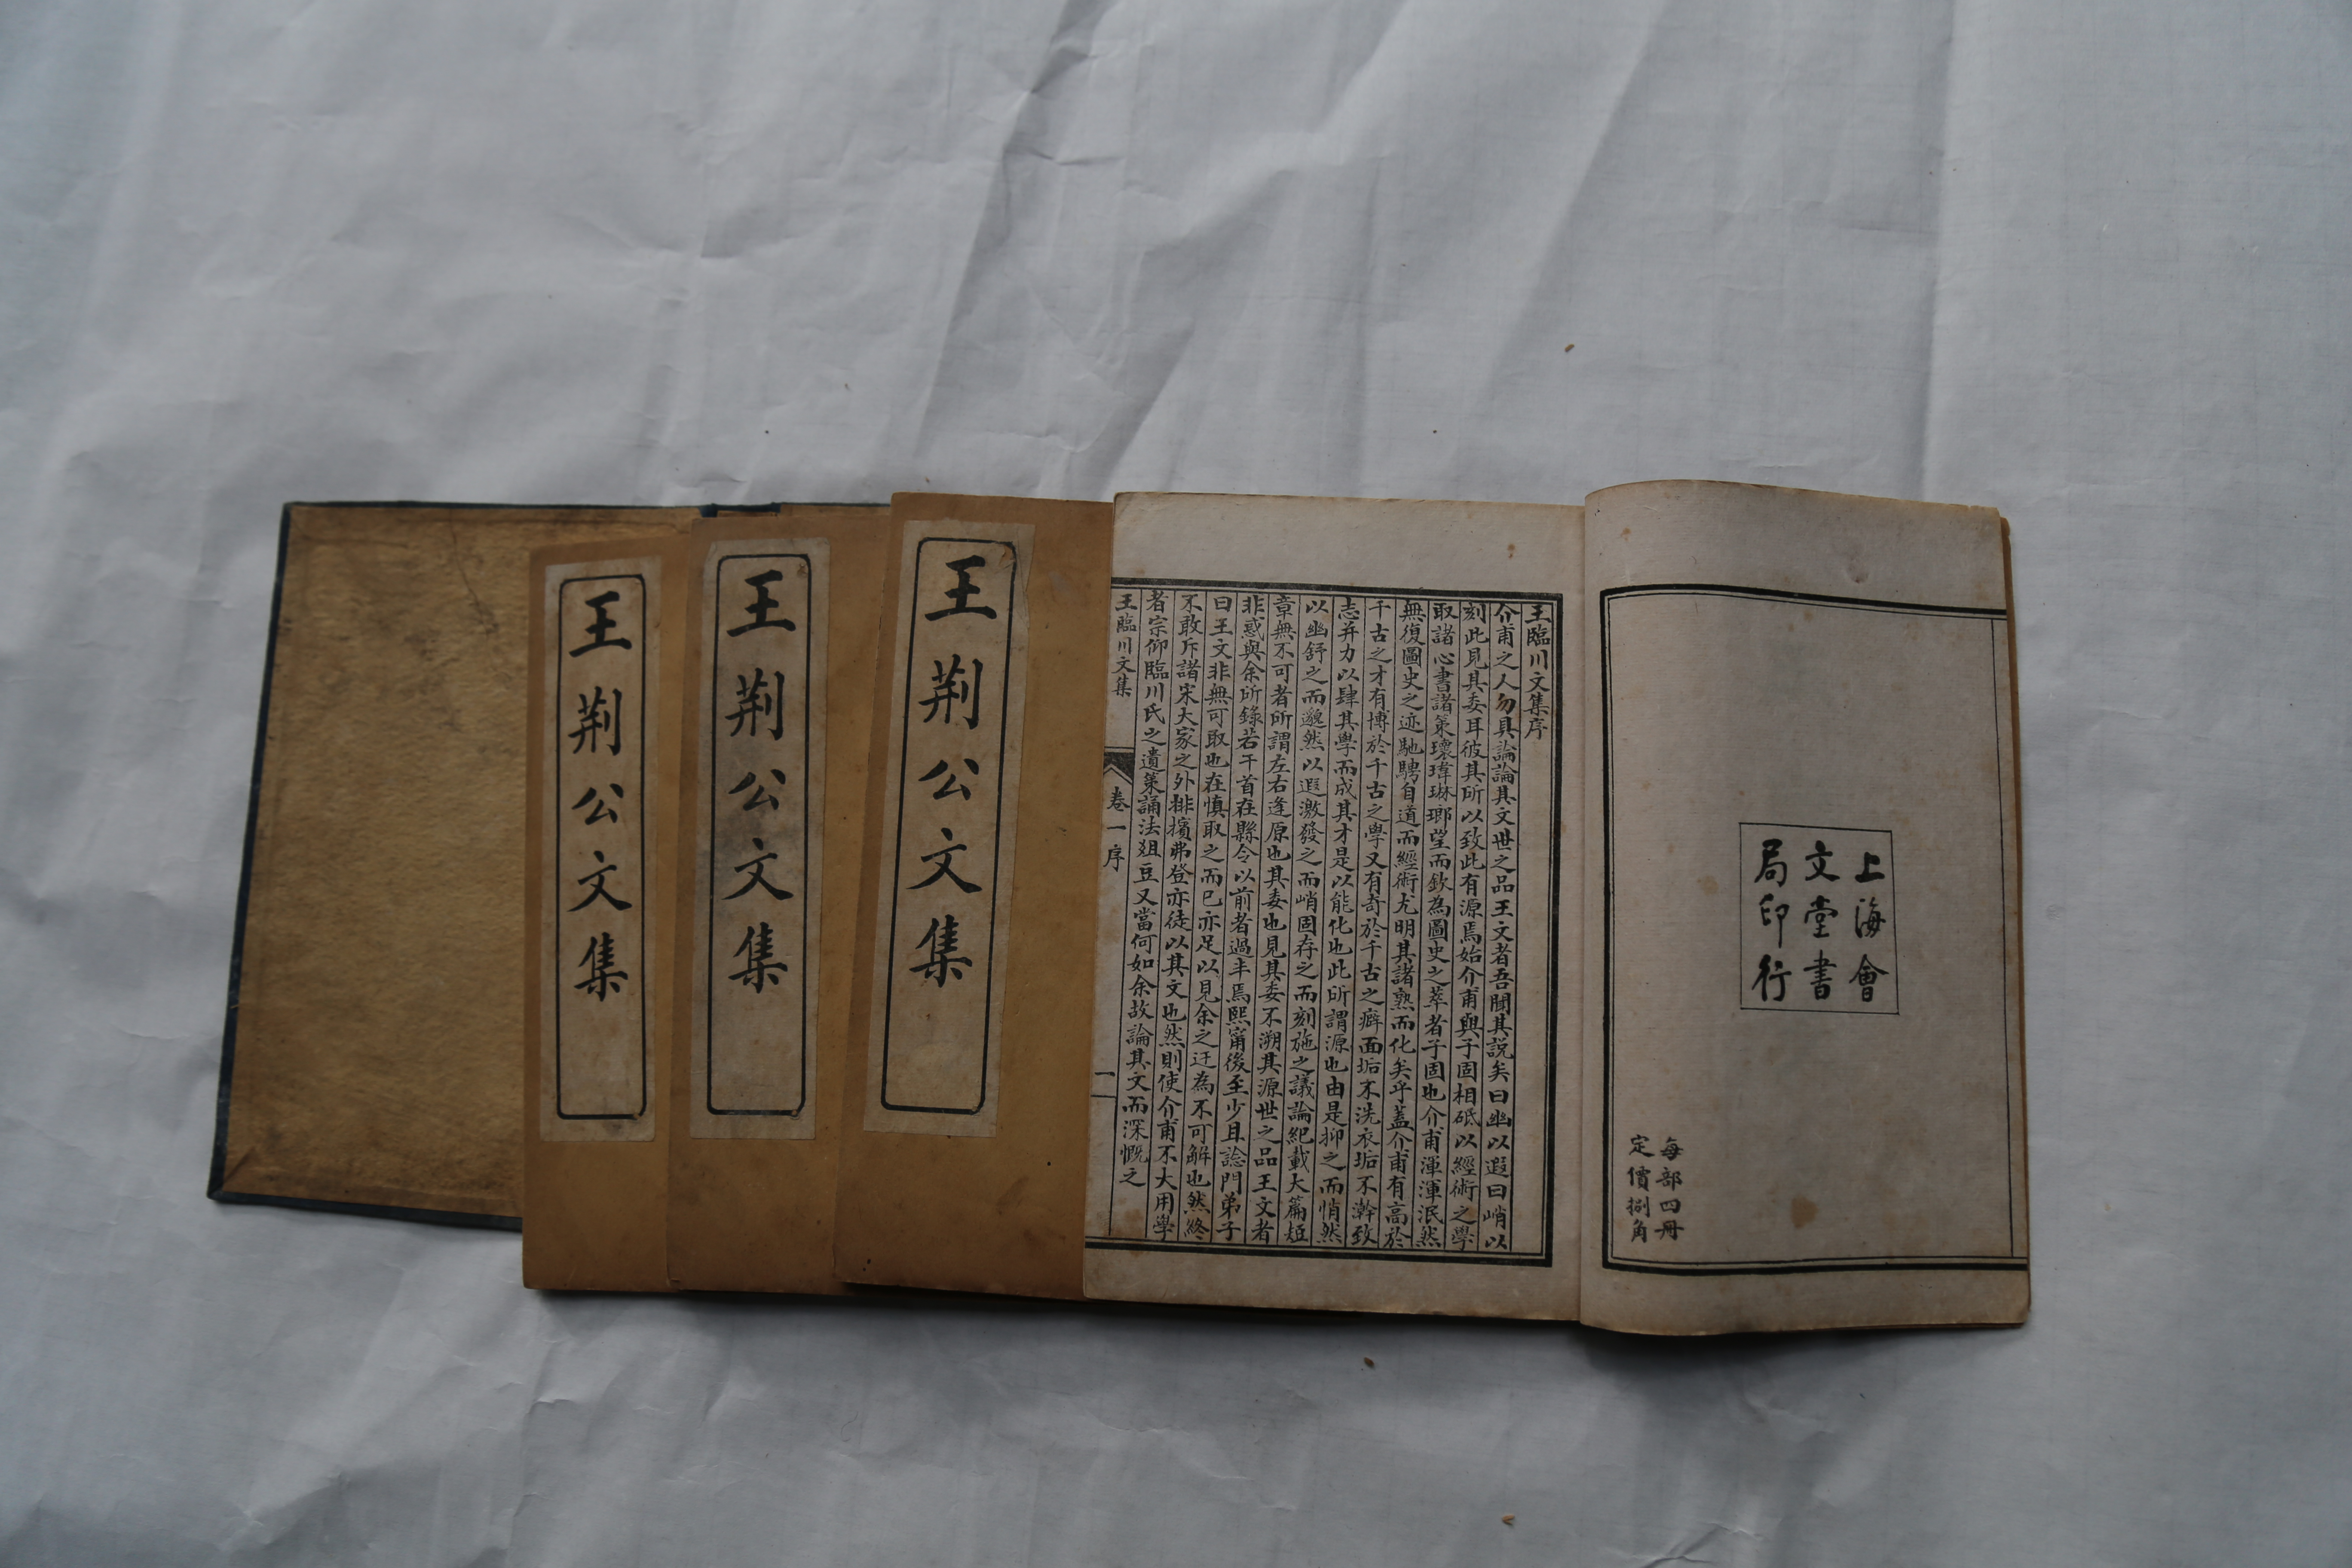 上海會
文堂書
局印行
每部四冊
定價捌角
王臨川文集序
介甫之人勿具論論其文世之品王文者吾聞其說矣曰幽以遐曰峭以
刻此見其委耳彼其所以致此有源焉始介甫與子固相砥以經術之學
取諸心書諸策瓌瑋琳瑯望而欽為圖史之萃者子固也介甫渾渾泯然
無復圖史之迹馳騁自道而經術尤明其諸熟而化矣乎蓋介甫有高於
千古之才有博於千古之學又有奇於千古之癖面垢不洗衣垢不澣致
志并力以肆其學而成其才是以能化也此所謂源也由是抑之而悄然
以幽舒之而邈然以遐激發之而峭固存之而刻施之議論紀載大篇短
章無不可者所謂左右逢原也其委也見其委不溯其源世之品王文者
非惑與余所錄若干首在縣令以前者過半焉熙甯後至少且諗門弟子
曰王文非無可取也在慎取之而已亦足以見余之迂為不可解也然終
不敢斥諸宋大家之外排擯弗登亦徒以其文也然則使介甫不大用學
者宗仰臨川氏之遺策誦法俎豆又當何如余故論其文而深慨之
王臨川文集
卷一序
一
王荆公文集
王荆公文集
王荆公文集